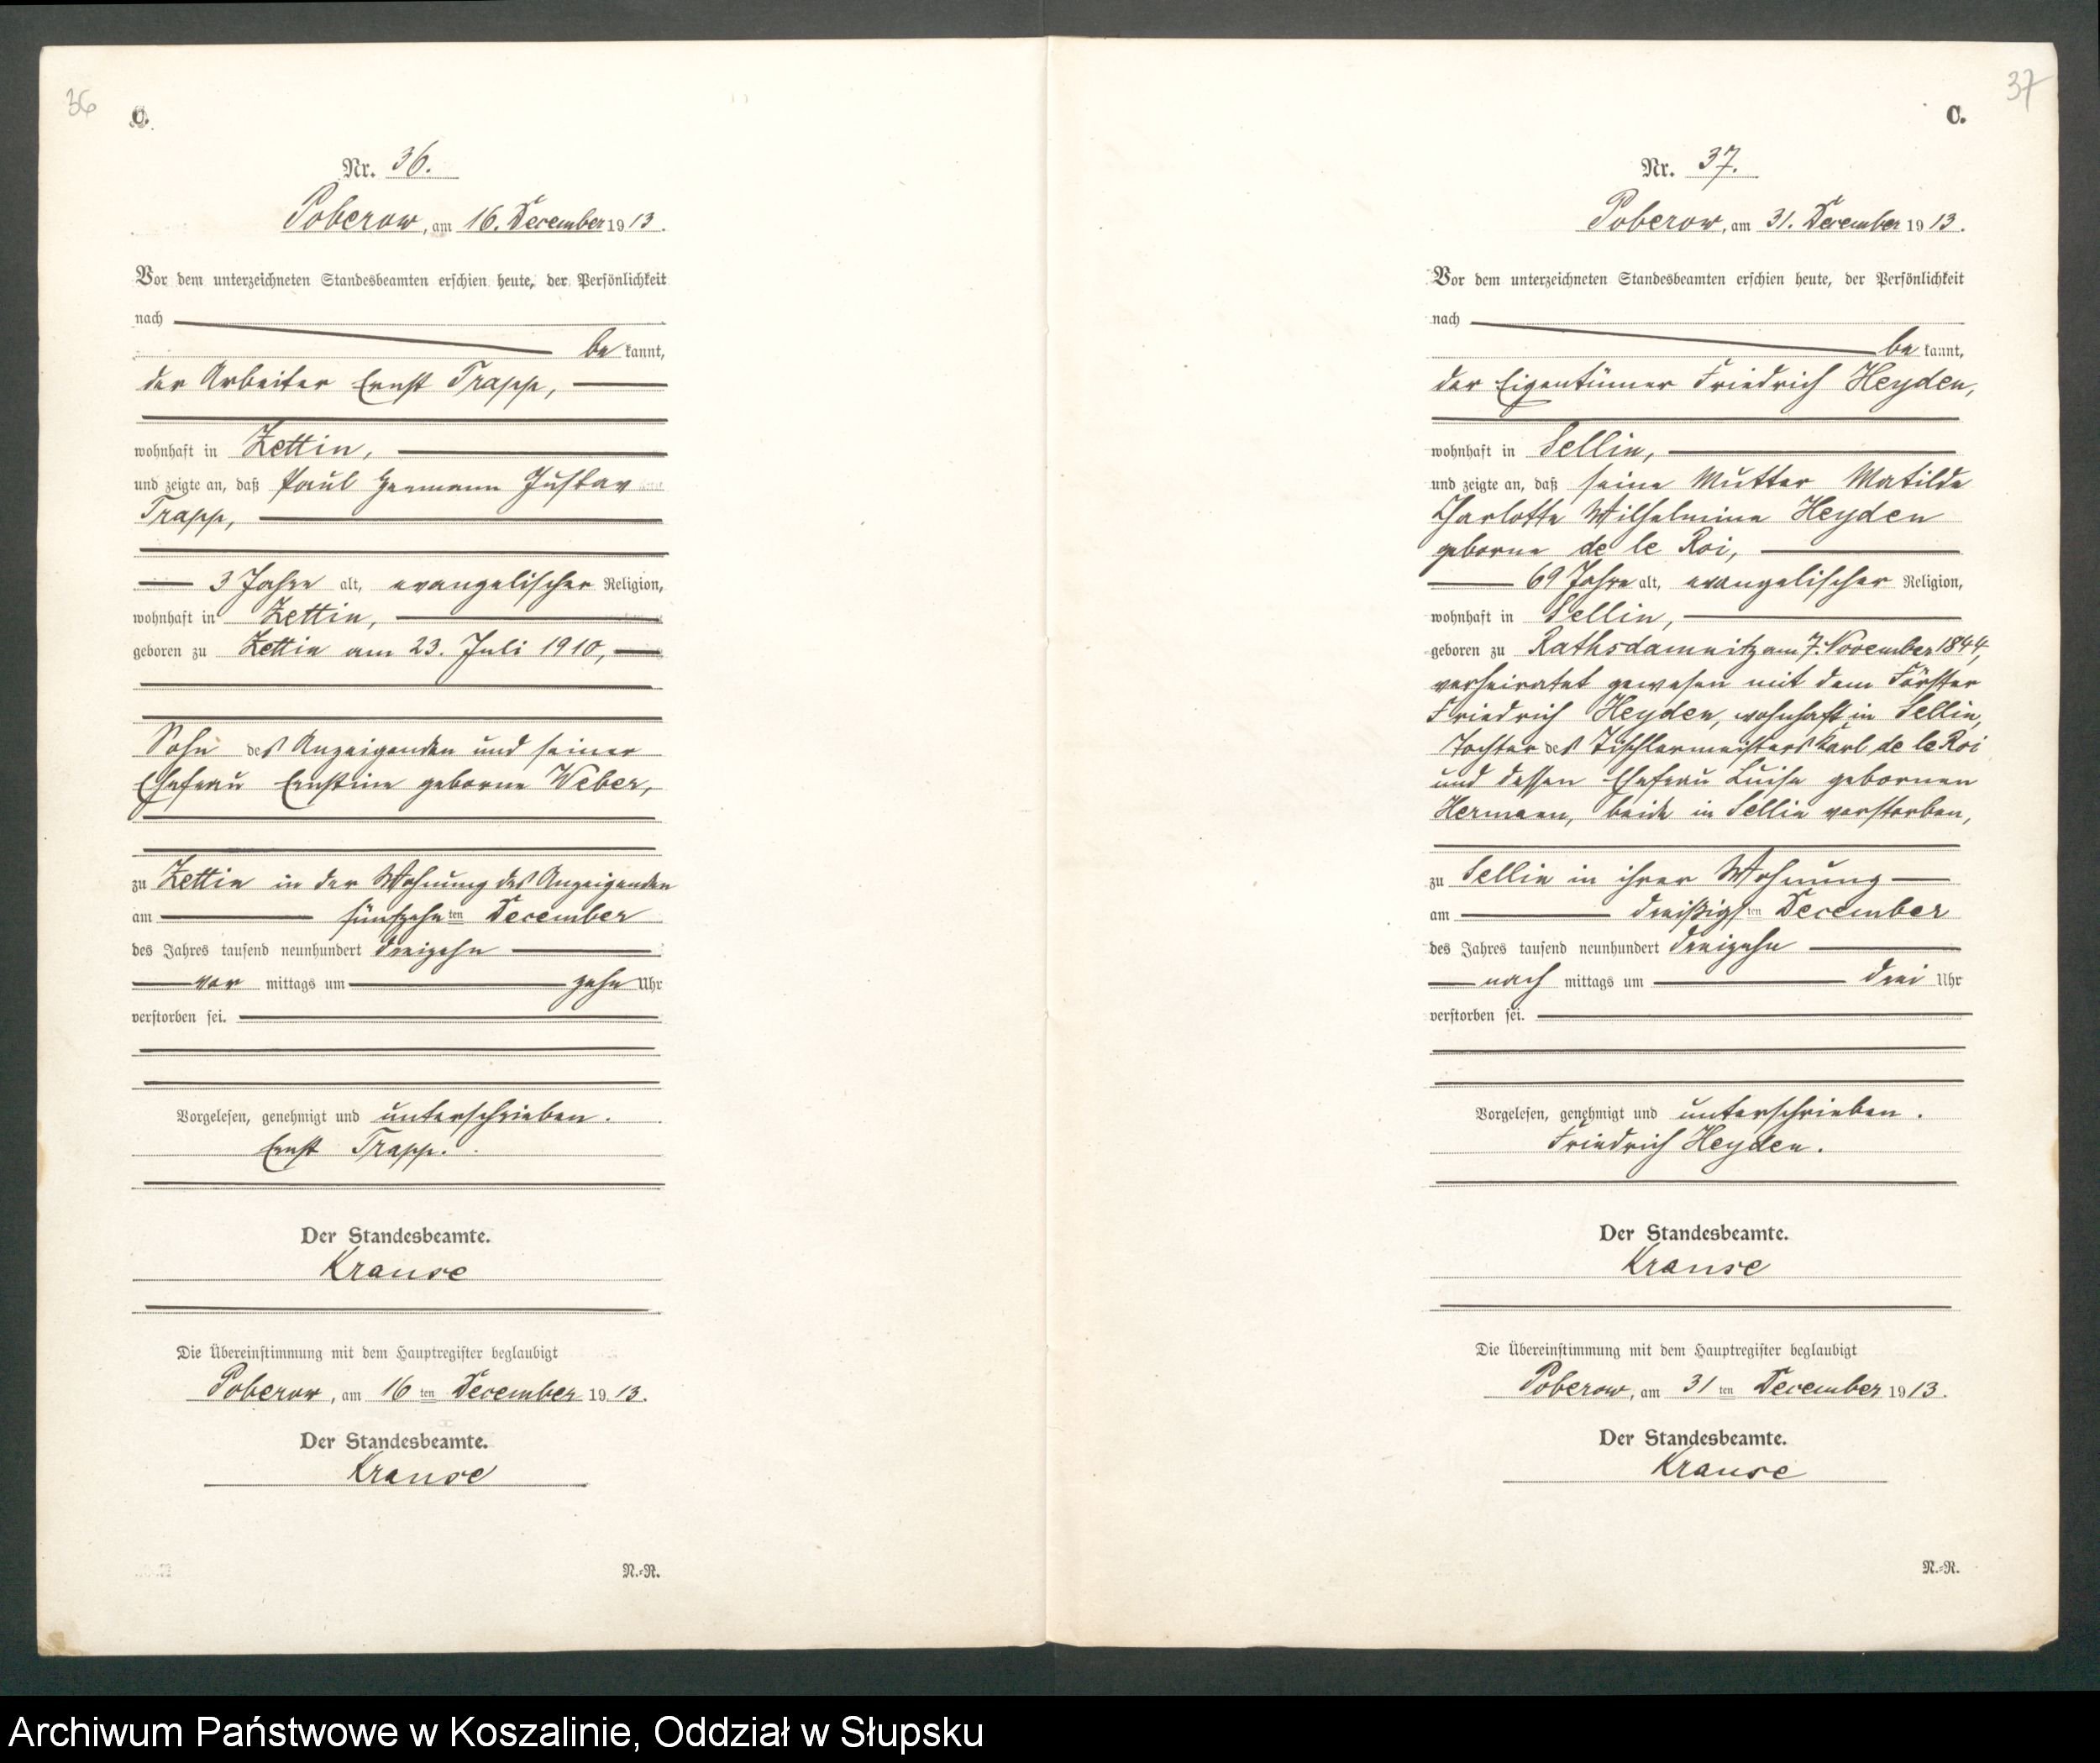 36
C.
Nr. 36.
Poberow, am 16. December 1913.
Vor dem unterzeichneten Standesbeamten erschien heute, der Persönlichkeit
nach
be kannt,
der Arbeiter Ernst Trapp,
wohnhaft in Zettin,
und zeigte an, daß Paul Hermann Gustav
Trapp,
3 Jahre alt, evangelischer Religion,
wohnhaft in Zettin,
geboren zu Zettin am 23. Juli 1910,
Sohn des Anzeigenden und seiner
Ehefrau Ernstine geborne Weber,
zu Zettin in der Wohnung des Anzeigenden
am fünfzehn ten December
des Jahres tausend neunhundert dreizehn
vor mittags um zehn Uhr
verstorben sei.
Vorgelesen, genehmigt und unterschrieben.
Ernst Trapp.
Der Standesbeamte.
Krause
Die Übereinstimmung mit dem Hauptregister beglaubigt
Poberow, am 16 ten December 1913.
Der Standesbeamte.
Krause
N.-R.
37
C.
Nr. 37.
Poberow, am 31. December 1913.
Vor dem unterzeichneten Standesbeamten erschien heute, der Persönlichkeit
nach
be kannt,
der Eigentümer Friedrich Heyden,
wohnhaft in Sellin,
und zeigte an, daß seine Mutter Matilde
Charlotte Wilhelmine Heyden
geborne de le Roi,
69 Jahre alt, evangelischer Religion,
wohnhaft in Sellin,
geboren zu Rathsdamnitz am 7. November 1844,
verheiratet gewesen mit dem Förster
Friedrich Heyden, wohnhaft in Sellin,
Tochter des Tischlermeisters Karl de le Roi
und dessen Ehefrau Luise gebornen
Hermann, beide in Sellin verstorben,
zu Sellin in ihrer Wohnung
am dreißigs ten December
des Jahres tausend neunhundert dreizehn
nach mittags um drei Uhr
verstorben sei.
Vorgelesen, genehmigt und unterschrieben.
Friedrich Heyden.
Der Standesbeamte.
Krause
Die Übereinstimmung mit dem Hauptregister beglaubigt
Poberow, am 31 ten December 1913.
Der Standesbeamte.
Krause
N.-R.
Archiwum Państwowe w Koszalinie, Oddział w Słupsku